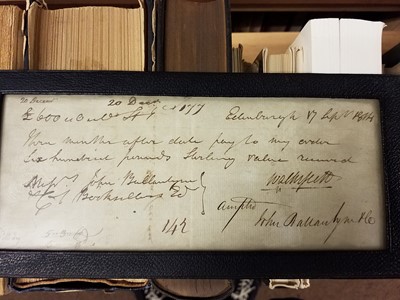 20 Decr
£600 Edinburgh 17 Septr 1814
Three months after date pay to my order
Six hundred pounds Sterling value received
Messrs. John Ballantyne
& Co Booksellers Edr
Walter Scott
accepted
John Ballantyne & Co
142